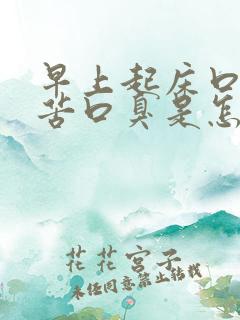 早上起床口
苦口臭是怎
花花宫子
未经同意禁止转载